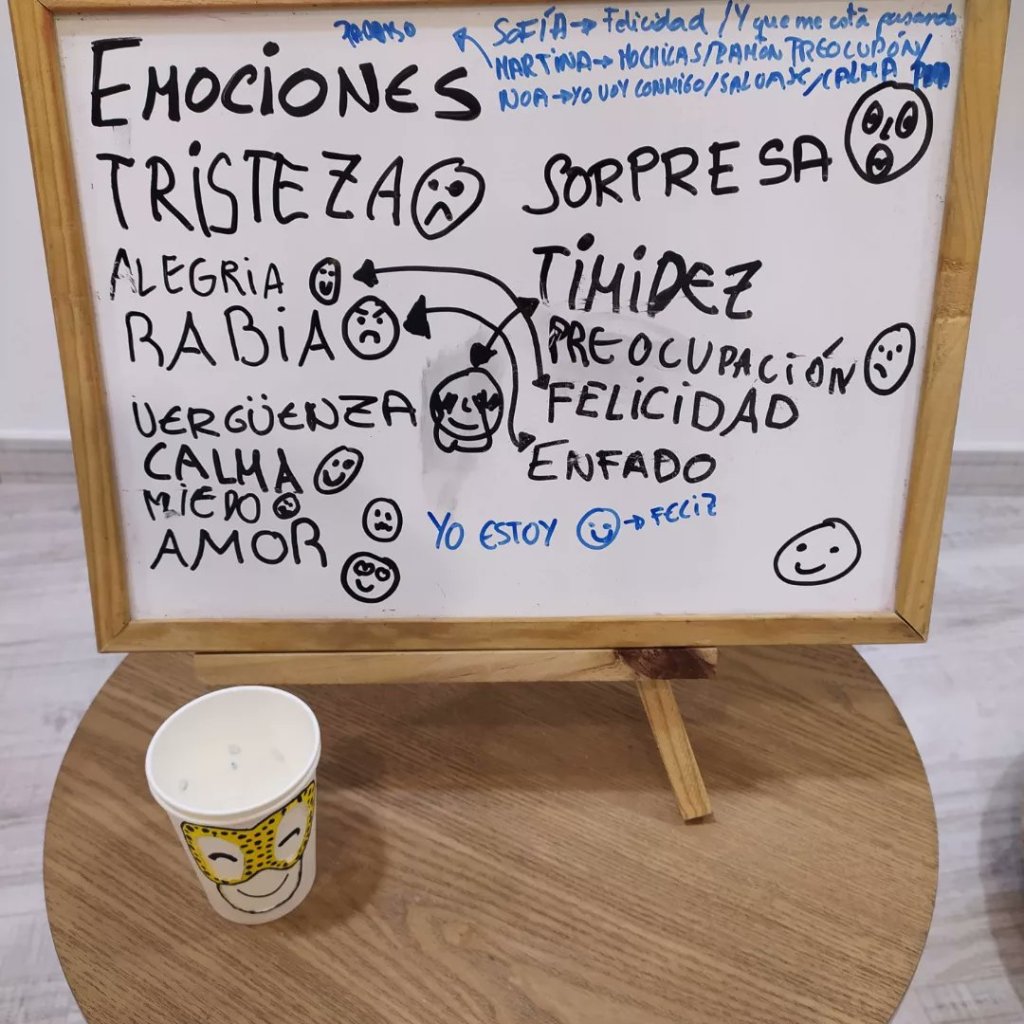 SOFÍA → Felicidad / Y que me está pasando
MARTINA → MOCHILAS / RAMÓN PREOCUPÓN /
NOA → YO VOY CONMIGO / SALVAJE / CALMA
EMOCIONES
TRISTEZA
SORPRESA
ALEGRIA
TIMIDEZ
RABIA
PREOCUPACIÓN
FELICIDAD
VERGÜENZA
ENFADO
CALMA
MIEDO
AMOR
YO ESTOY → FELIZ